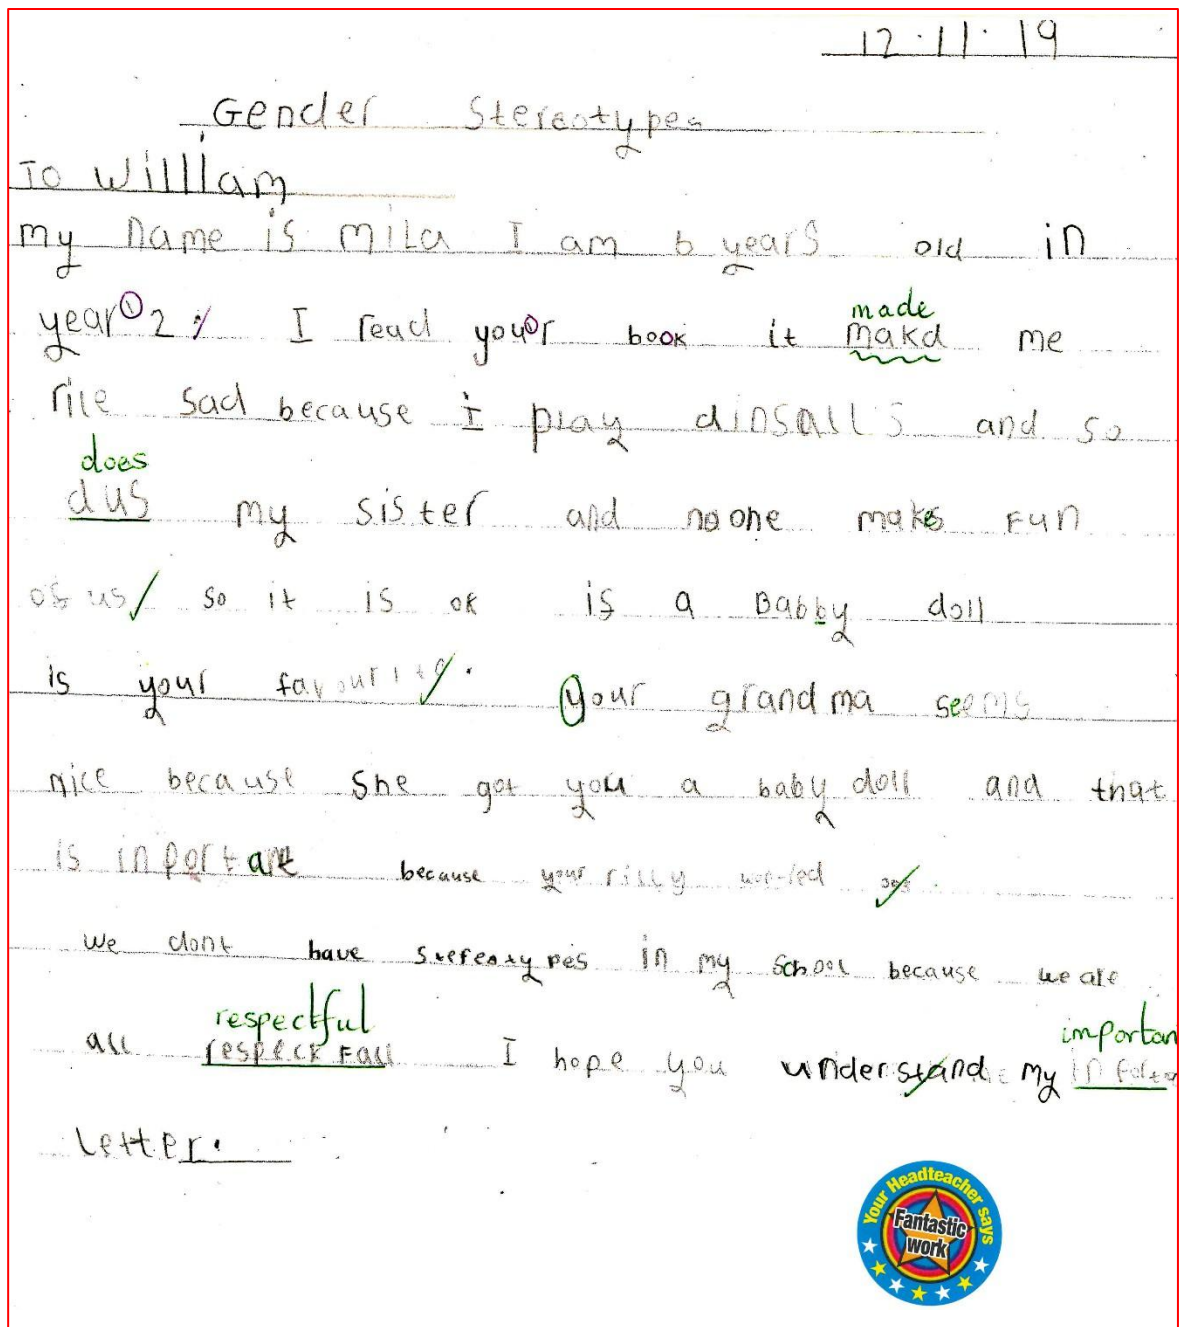 12.11.19
Gender Stereotypes
To William
my name is mila I am 6 years old in
made
year 2 I read your book it makd me
rile sad because I play dinsalls and so
does
dus my sister and no one makes Fun
of us so it is ok is a Babby doll
is your favourite. your grandma seems
nice because she got you a baby doll and that
is inportant because your rilly
we dont have stereotypes in my school because we are
respectful importan
all respeck Fall I hope you understand my
letter.
Your Headteacher says
Fantastic
work